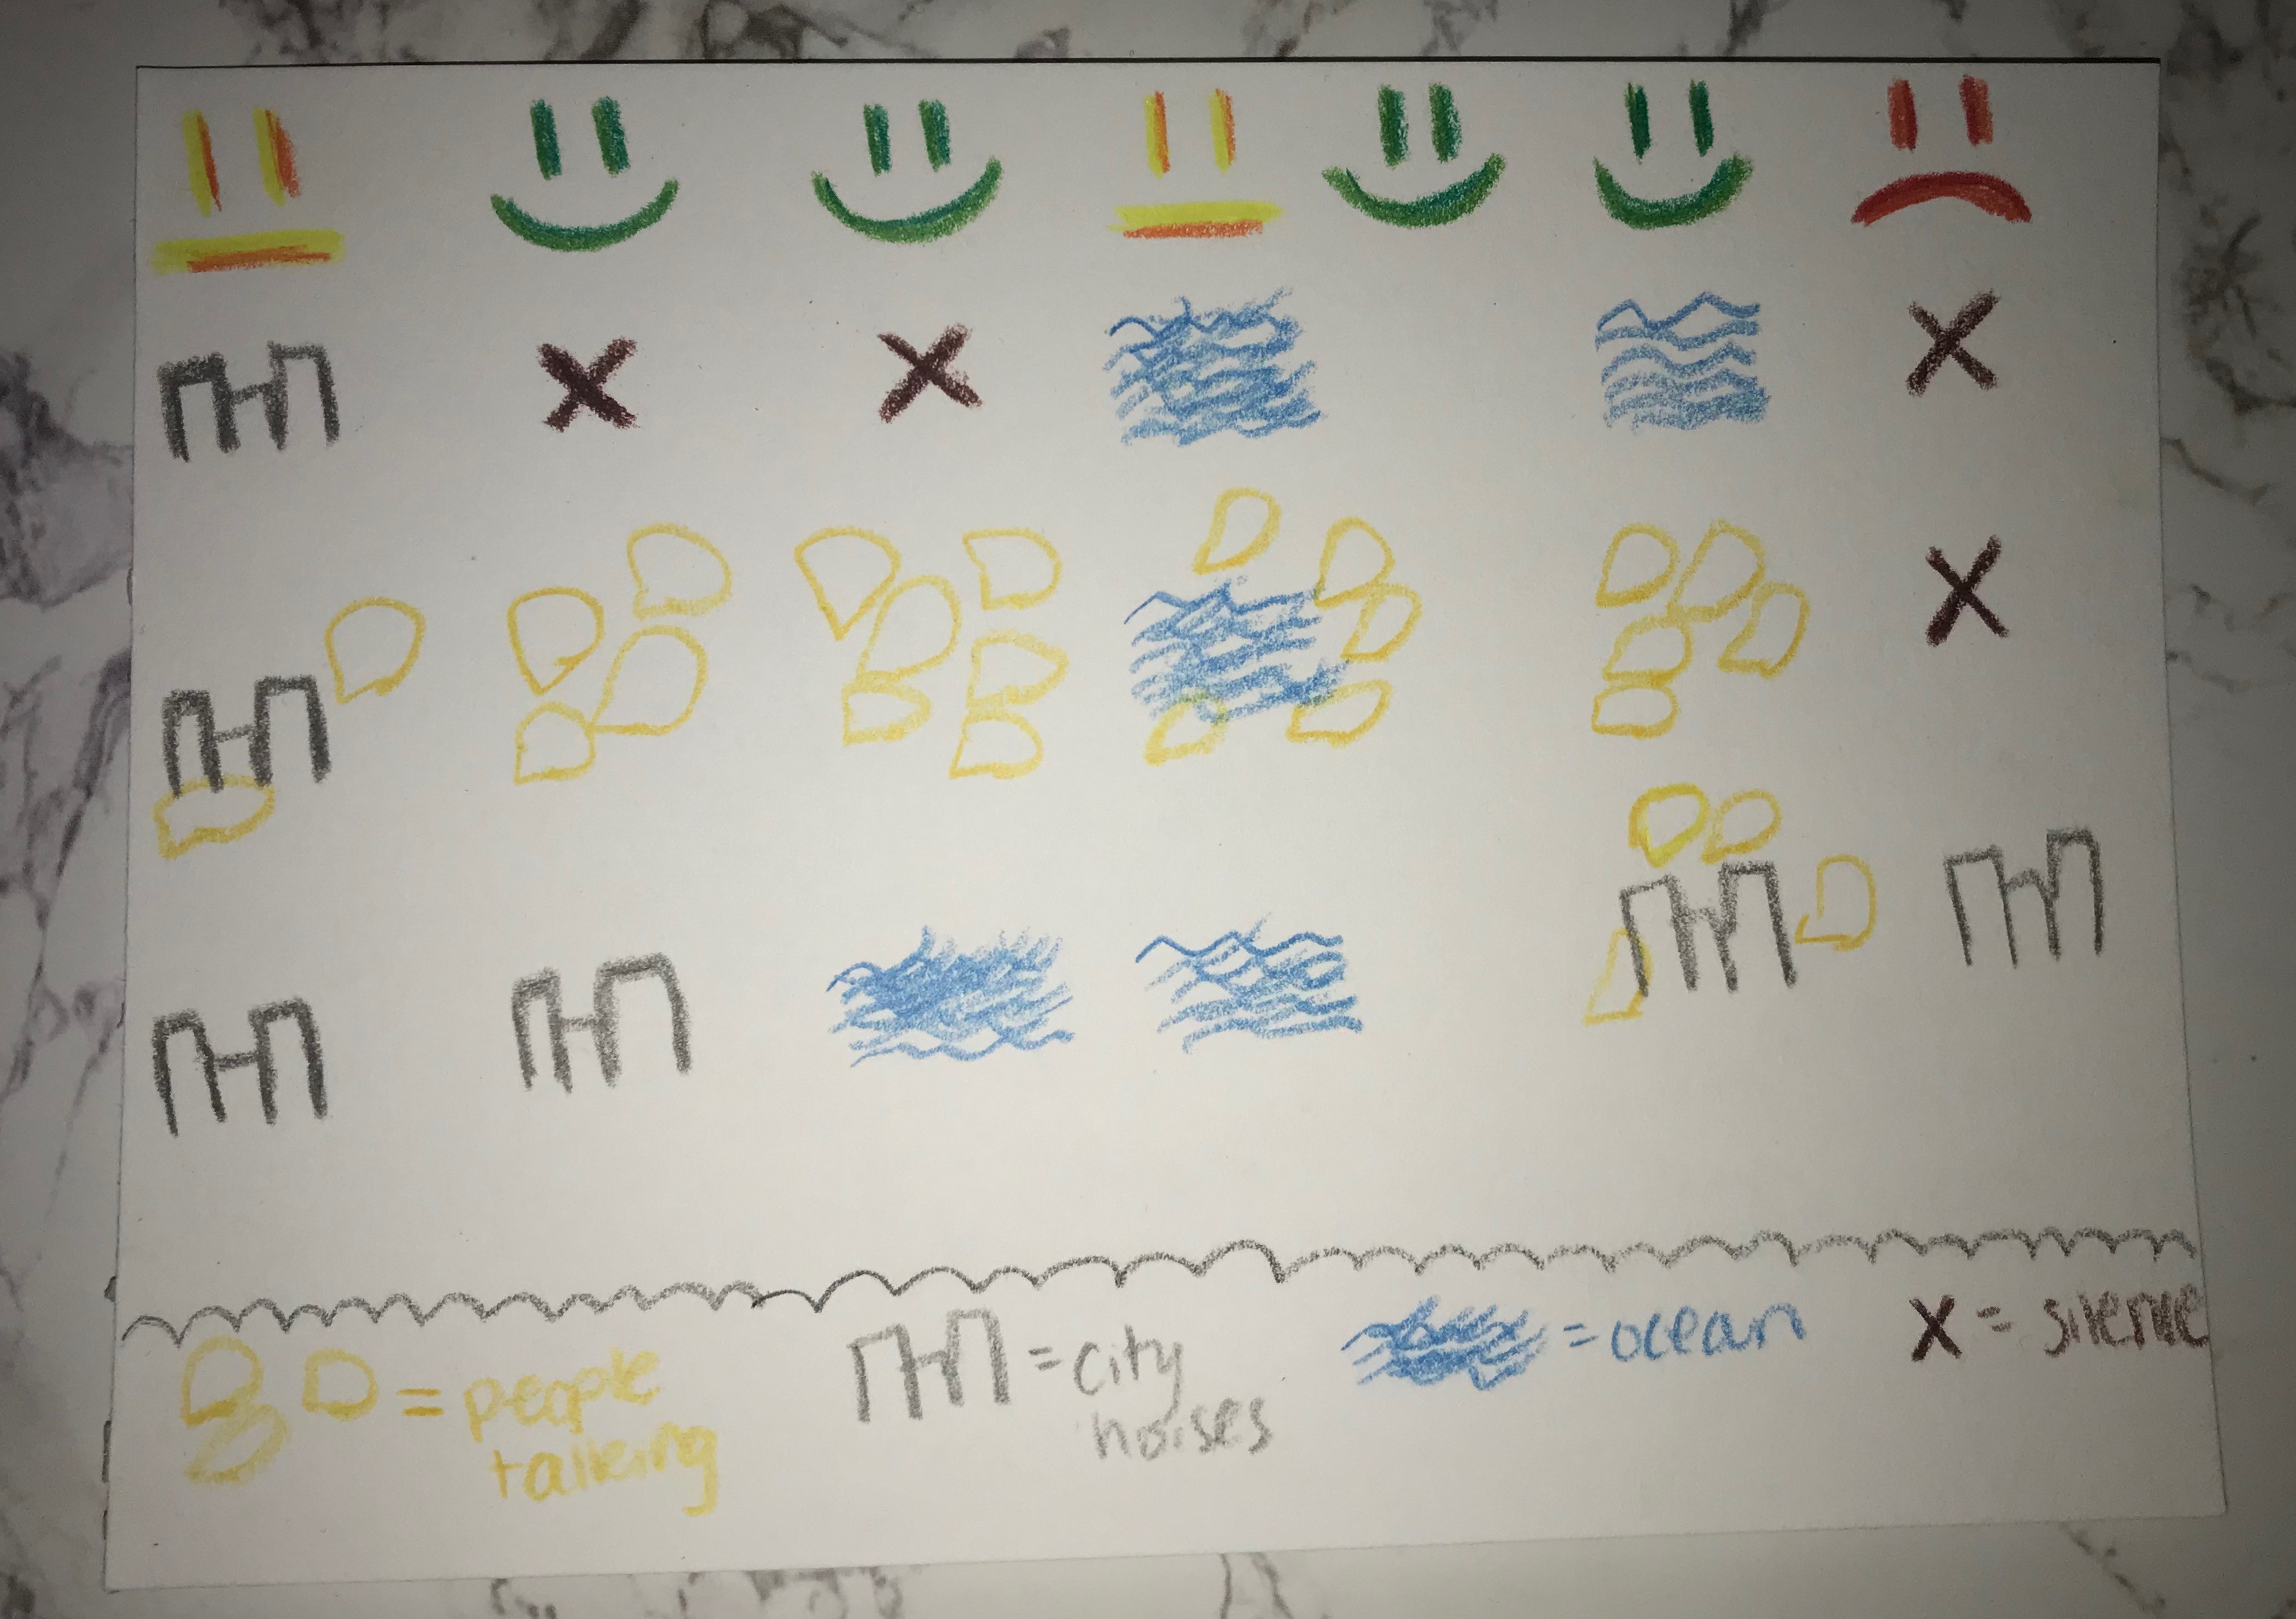 = people
talking
= city
noises
= ocean
X = silence